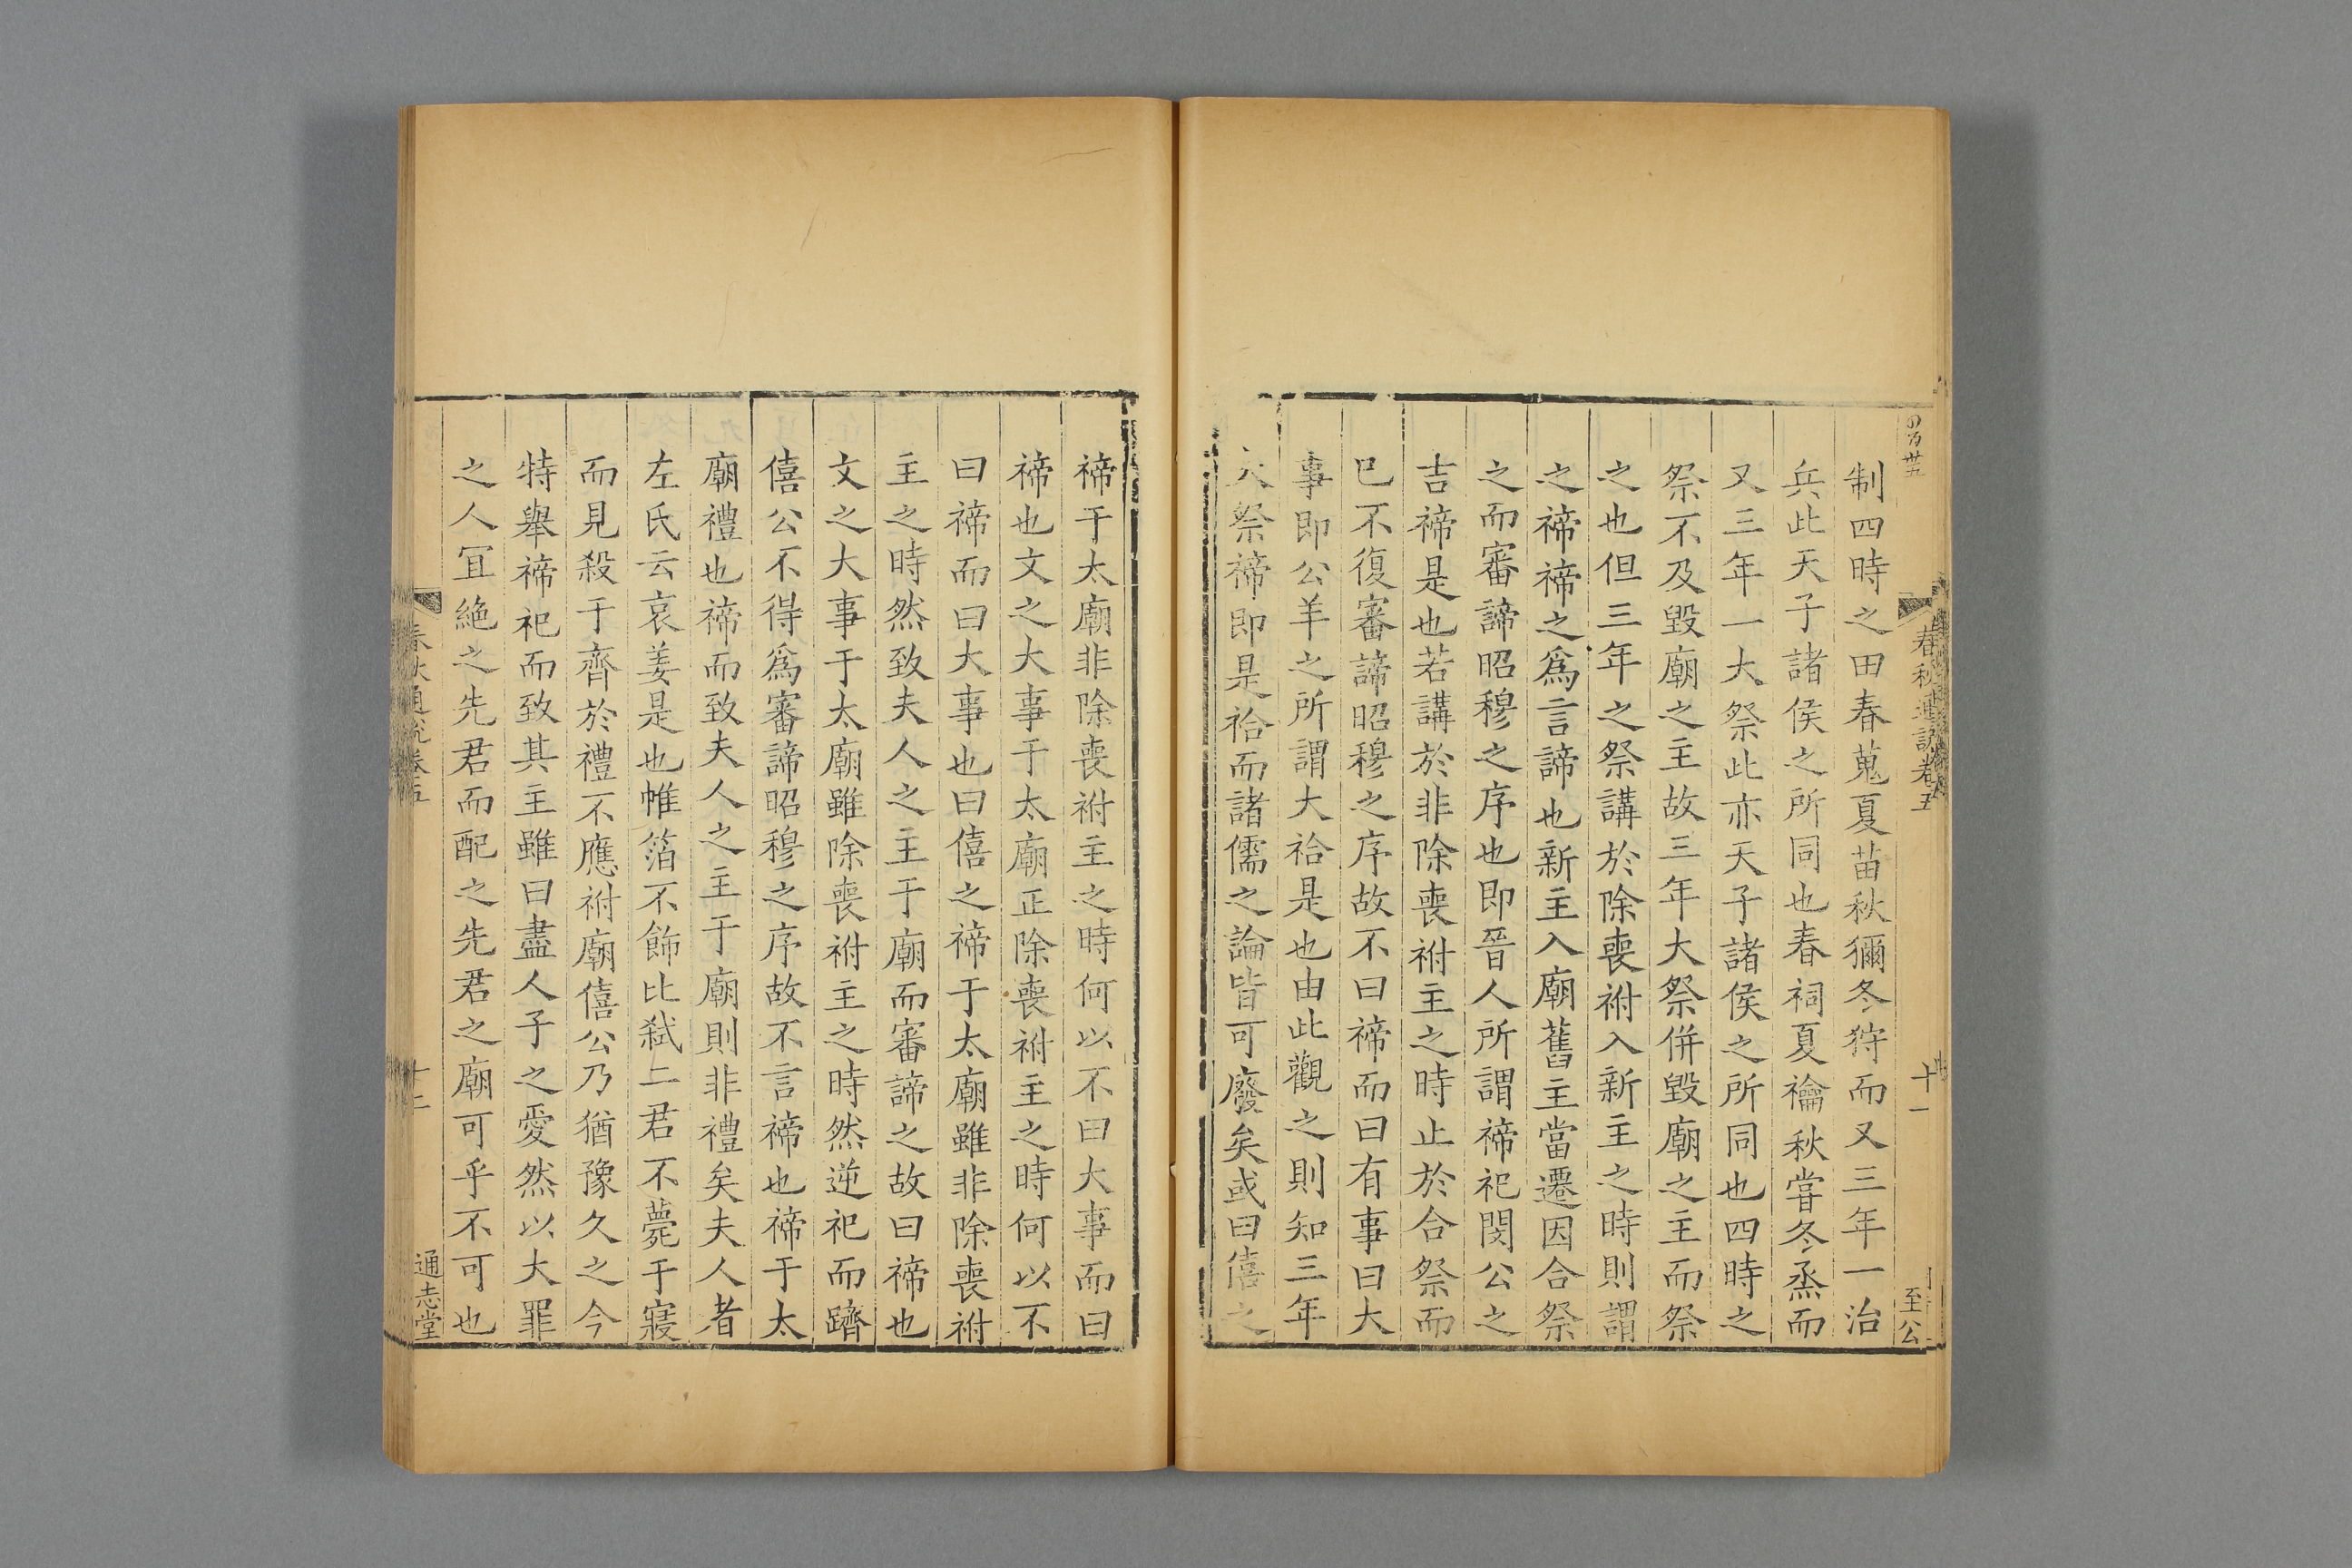 春秋通說卷五
十一
至公
制四時之田春蒐夏苗秋獮冬狩而又三年一治
兵此天子諸侯之所同也春祠夏禴秋嘗冬烝而
又三年一大祭此亦天子諸侯之所同也四時之
祭不及毀廟之主故三年大祭併毀廟之主而祭
之也但三年之祭講於除喪祔入新主之時則謂
之禘禘之爲言諦也新主入廟舊主當遷因合祭
之而審諦昭穆之序也即晉人所謂禘祀閔公之
吉禘是也若講於非除喪祔主之時止於合祭而
已不復審諦昭穆之序故不曰禘而曰有事曰大
事即公羊之所謂大祫是也由此觀之則知三年
大祭禘即是祫而諸儒之論皆可廢矣或曰僖之
禘于太廟非除喪祔主之時何以不曰大事而曰
禘也文之大事于太廟正除喪祔主之時何以不
曰禘而曰大事也曰僖之禘于太廟雖非除喪祔
主之時然致夫人之主于廟而審諦之故曰禘也
文之大事于太廟雖除喪祔主之時然逆祀而躋
僖公不得爲審諦昭穆之序故不言禘也禘于太
廟禮也禘而致夫人之主于廟則非禮矣夫人者
左氏云哀姜是也帷箔不飾比弑二君不薨于寢
而見殺于齊於禮不應祔廟僖公乃猶豫久之今
特舉禘祀而致其主雖曰盡人子之愛然以大罪
之人冝絶之先君而配之先君之廟可乎不可也
春秋通說卷五
十二
通志堂